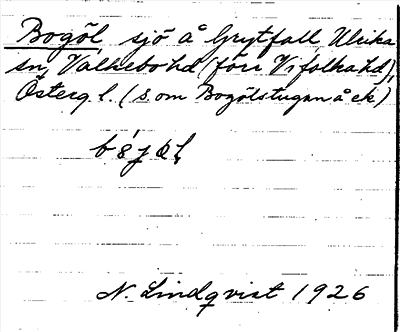 Bogöl, sjö å Grytfall Ulrika
sn, Valkebo hd (förr Vifolka hd),
Österg l. (s om Bogölstugan å ek)
N. Lindqvist 1926